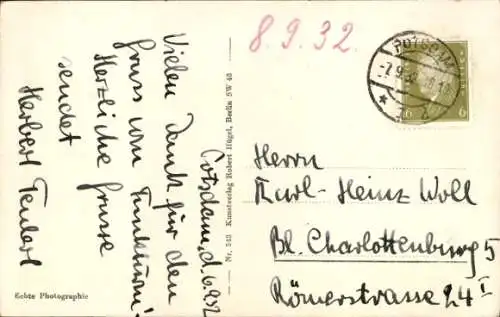 8.9.32.
POTSDAM
-7.9.32
6
6
Potsdam, d. 6.9.32
Vielen Dank für den
Gruss vom Funkturm!
Herzliche Grüsse
sendet
Herbert
Nr. 543 Kunstverlag Robert Hügel, Berlin SW 48
Echte Photographie
Herrn
Karl-Heinz Woll
Bl. Charlottenburg 5
Römerstrasse 24 I